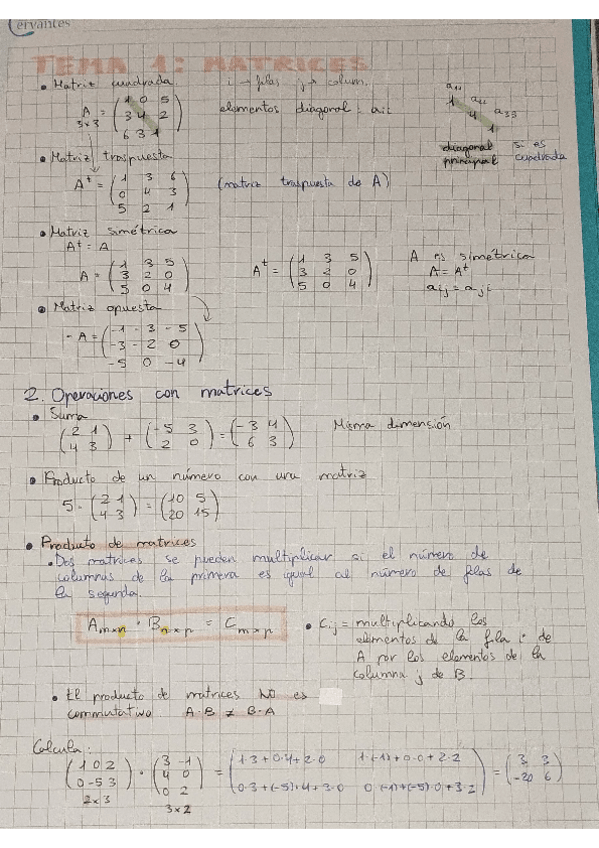 Cervantes
TEMA 1: MATRICES
• Matriz cuadrada i → filas j → colum.
A 3x3 = (1 0 5 / 3 4 2 / 6 3 1) elementos diagonal: aii
a11 a22 a33
1 4 1
diagonal principal si es cuadrada
• Matriz traspuesta
At = (1 3 6 / 0 4 3 / 5 2 1) (matriz traspuesta de A)
• Matriz simétrica
At = A
A = (1 3 5 / 3 2 0 / 5 0 4) At = (1 3 5 / 3 2 0 / 5 0 4)
A es simétrica
A = At
aij = aji
• Matriz opuesta
-A = (-1 -3 -5 / -3 -2 0 / -5 0 -4)
2. Operaciones con matrices
• Suma
(2 1 / 4 3) + (-5 3 / 2 0) = (-3 4 / 6 3) Misma dimensión
• Producto de un número con una matriz
5 · (2 1 / 4 3) = (10 5 / 20 15)
• Producto de matrices
• Dos matrices se pueden multiplicar si el número de
columnas de la primera es igual al número de filas de
la segunda.
Amxn · Bnxp = Cmxp
• Cij = multiplicando los
elementos de la fila i de
A por los elementos de la
columna j de B.
• El producto de matrices NO es
conmutativo A·B ≠ B·A
Calcula:
(1 0 2 / 0 -5 3) · (3 -1 / 4 0 / 0 2) = (1·3+0·4+2·0 1·(-1)+0·0+2·2 / 0·3+(-5)·4+3·0 0·(-1)+(-5)·0+3·2) = (3 3 / -20 6)
2x3 3x2